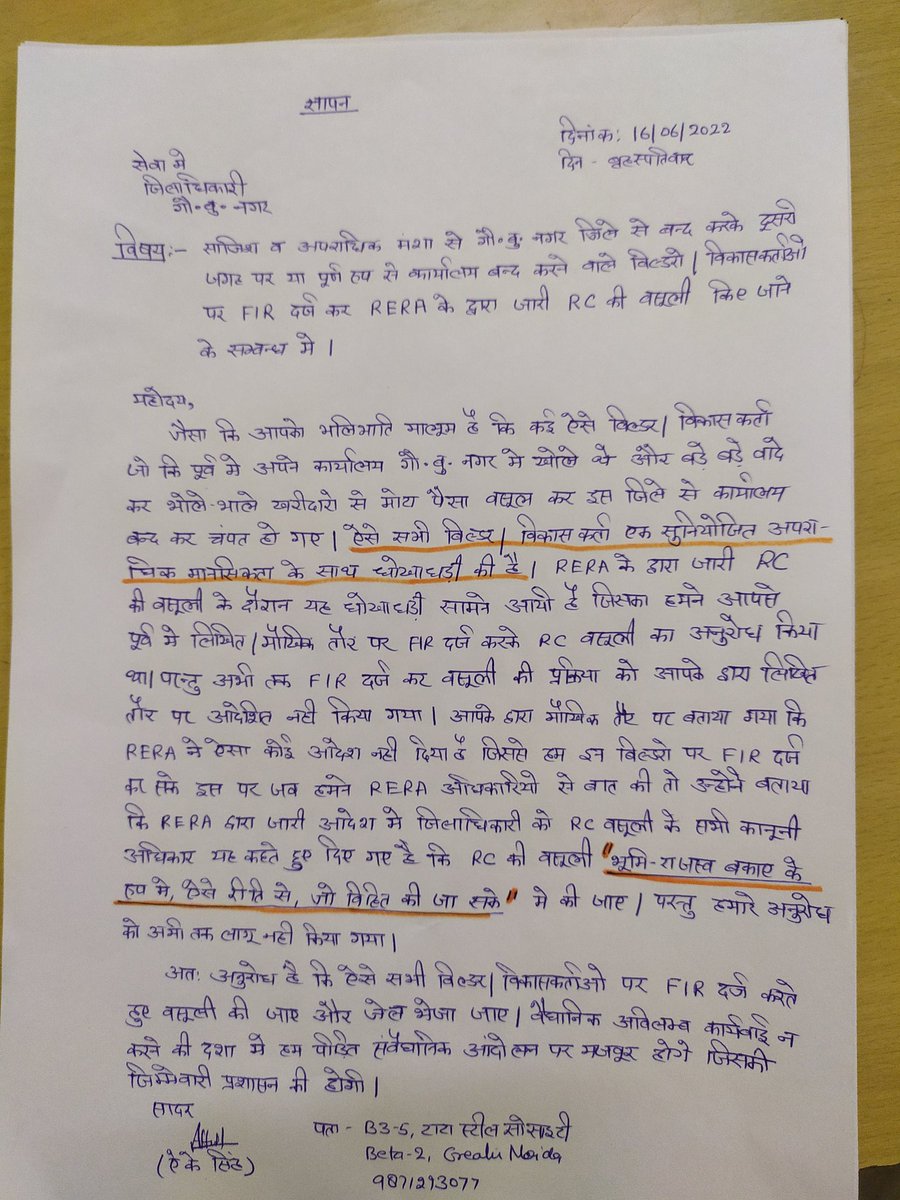 ज्ञापन
दिनांक: 16/06/2022
दिन - बृहस्पतिवार
सेवा मे
जिलाधिकारी
गौ॰बु॰नगर
विषय:- साजिश व अपराधिक मंशा से गौ॰बु॰नगर जिले से बन्द करके दूसरी
जगह पर या पूर्ण रूप से कार्यालय बन्द करने वाले बिल्डरो / विकासकर्ताओ
पर FIR दर्ज कर RERA के द्वारा जारी RC की वसूली किए जाने
के सम्बन्ध मे ।
महोदय,
जैसा कि आपको भलिभाति मालूम है कि कई ऐसे बिल्डर / विकासकर्ता
जो कि पूर्व मे अपने कार्यालय गौ॰बु॰नगर मे खोले थे और बड़े बड़े वादे
कर भोले-भाले खरीदारो से मोटा पैसा वसूल कर इस जिले से कार्यालय
बन्द कर चंपत हो गए । ऐसे सभी बिल्डर / विकासकर्ता एक सुनियोजित अपरा-
धिक मानसिकता के साथ धोखाधड़ी की है । RERA के द्वारा जारी RC
की वसूली के दौरान यह धोखाधड़ी सामने आयी है जिसका हमने आपसे
पूर्व मे लिखित / मौखिक तौर पर FIR दर्ज करके RC वसूली का अनुरोध किया
था। परन्तु अभी तक FIR दर्ज कर वसूली की प्रक्रिया को आपके द्वारा लिखित
तौर पर आदेशित नही किया गया । आपके द्वारा मौखिक तौर पर बताया गया कि
RERA ने ऐसा कोई आदेश नही दिया है जिससे हम इन बिल्डरो पर FIR दर्ज
कर सके इस पर जब हमने RERA अधिकारियो से बात की तो उन्होने बताया
कि RERA द्वारा जारी आदेश मे जिलाधिकारी को RC वसूली के सभी कानूनी
अधिकार यह कहते हुए दिए गए है कि RC की वसूली "भूमि-राजस्व बकाए के
रूप मे, ऐसे रीति से, जो विहित की जा सके" मे की जाए । परन्तु हमारे अनुरोध
को अभी तक लागू नही किया गया ।
अत: अनुरोध है कि ऐसे सभी बिल्डर / विकासकर्ताओ पर FIR दर्ज करते
हुए वसूली की जाए और जेल भेजा जाए । वैधानिक अविलम्ब कार्यवाई न
करने की दशा मे हम पीड़ित संवैधानिक आंदोलन पर मजबूर होगे जिसकी
जिम्मेवारी प्रशासन की होगी ।
सादर
(ऐ के सिंह)
पता - B3-5, टाटा स्टील सोसाइटी
Beta-2, Greater Noida
9871293077